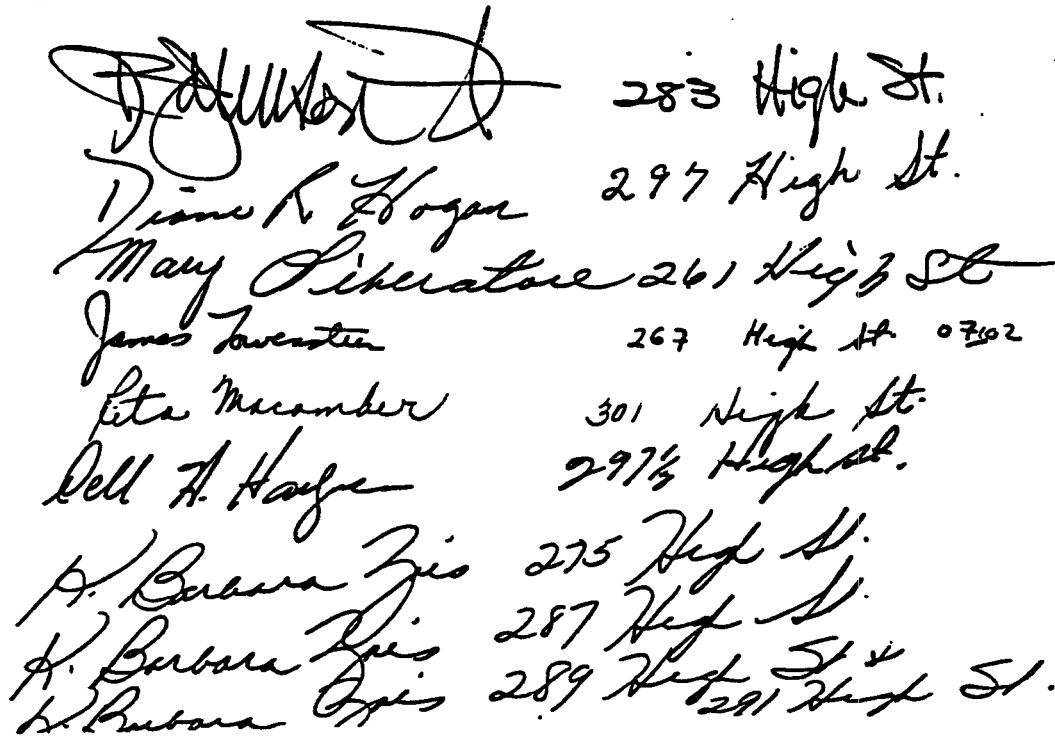 283 High St.
Diane R Hogan 297 High St.
Mary Liberatore 261 High St
James Lowenstein 267 High St. 07102
Rita Macomber 301 High St.
Dell H. 297½ High St.
K. Barbara 275 High St.
K. Barbara 287 High St
K. Barbara 289 High St &
291 High St.